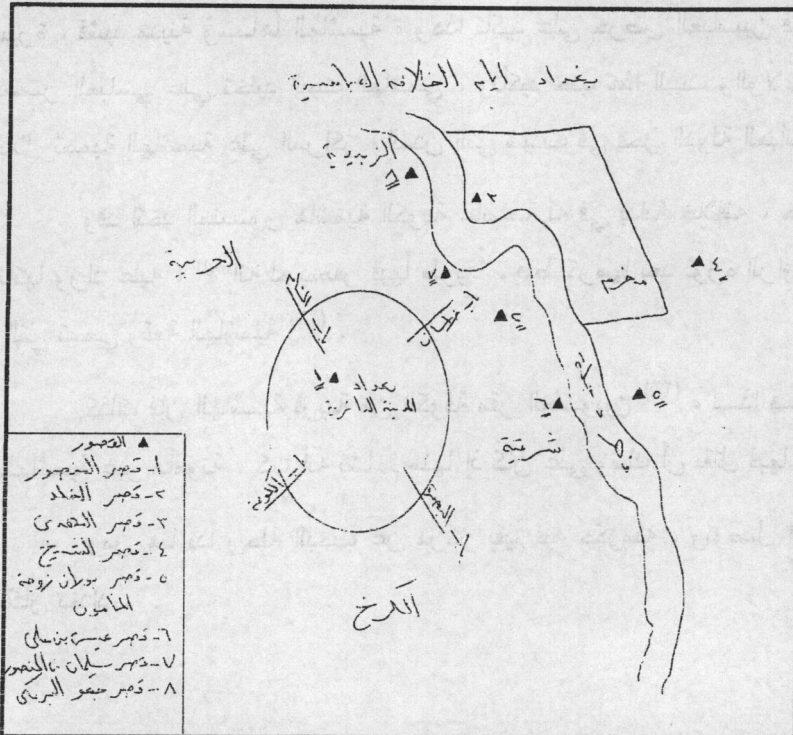 بغداد ايام الخلافة العباسية
الزبيدية
٨
٣
٤
الحربية
مخرم
٧
باب الشام
باب خراسان
٢
١
بغداد
المدينة الدائرية
دجلة
٦
٥
شرقية
نهر
باب الكوفة
باب البصرة
الكرخ
القصور
١- قصر المنصور
٢- قصر الخلد
٣- قصر المهدى
٤- قصر
٥- قصر بوران زوجة
المأمون
٦- قصر عيسى بن على
٧- قصر سليمان بن المنصور
٨- قصر جعفر البرمكى